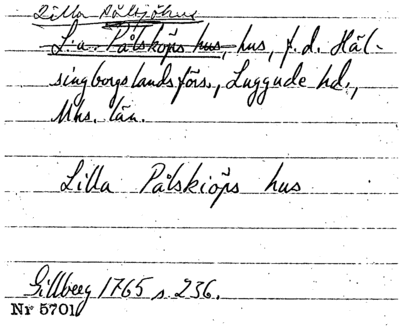 Lilla Pålsjöhus
L:a Pålsköps hus, hus, f.d. Häl-
singborgs landsförs., Luggude hd.,
Mhs. län.
Lilla Pålskiöps hus
Gillberg 1765 s. 236.
Nr 5701